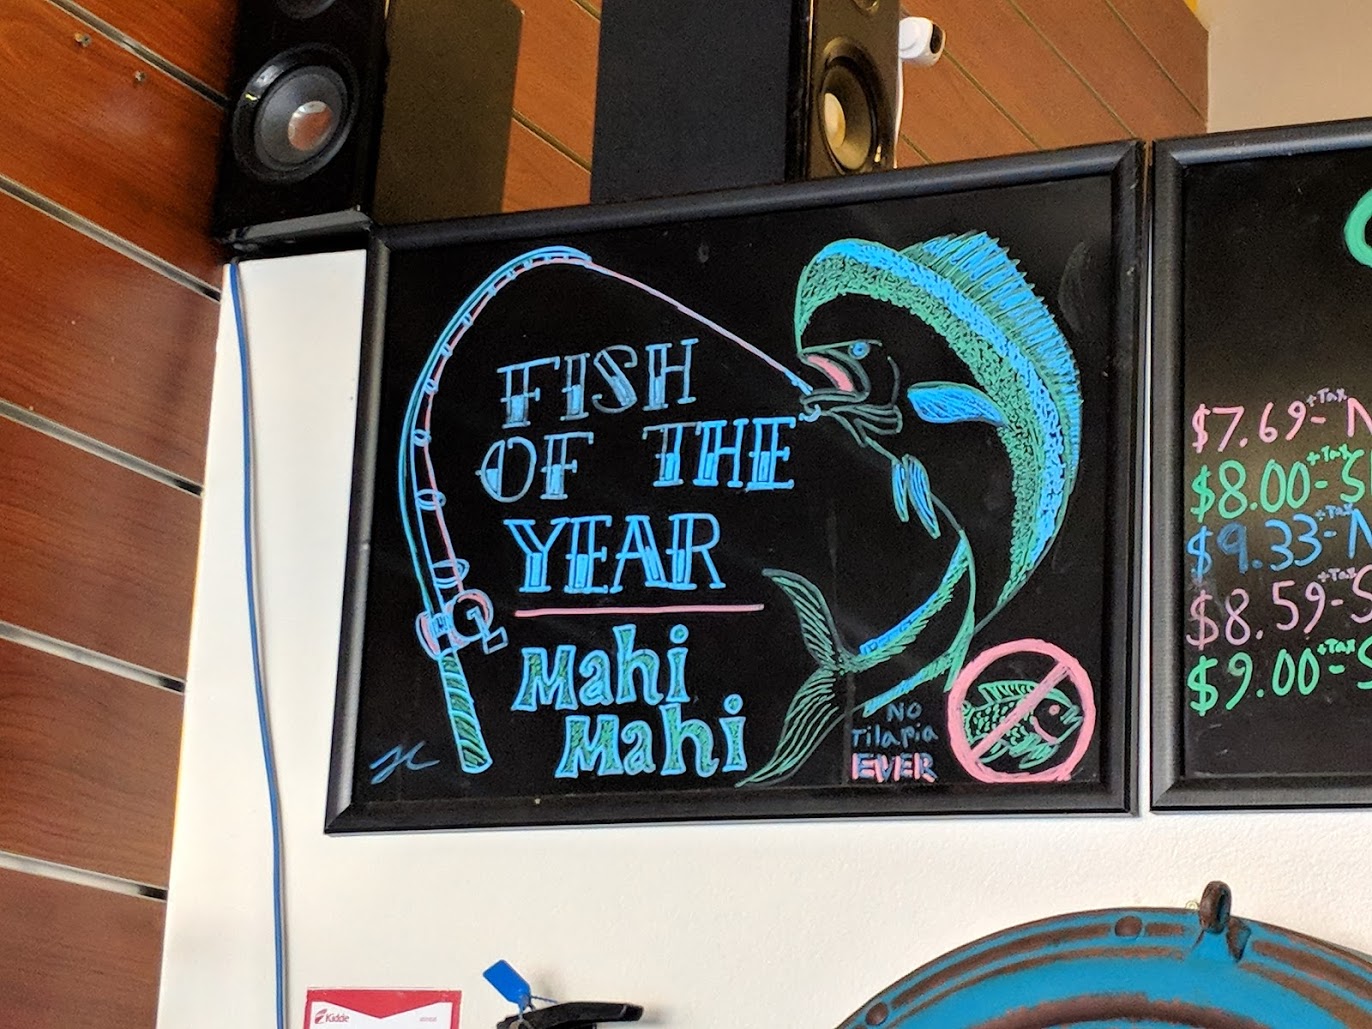 FISH
OF THE
YEAR
Mahi
Mahi
NO
Tilapia
EVER
$7.69-
+Tax
$8.00-
+Tax
$9.33-
+Tax
$8.59-
+Tax
$9.00-
+Tax
Kidde